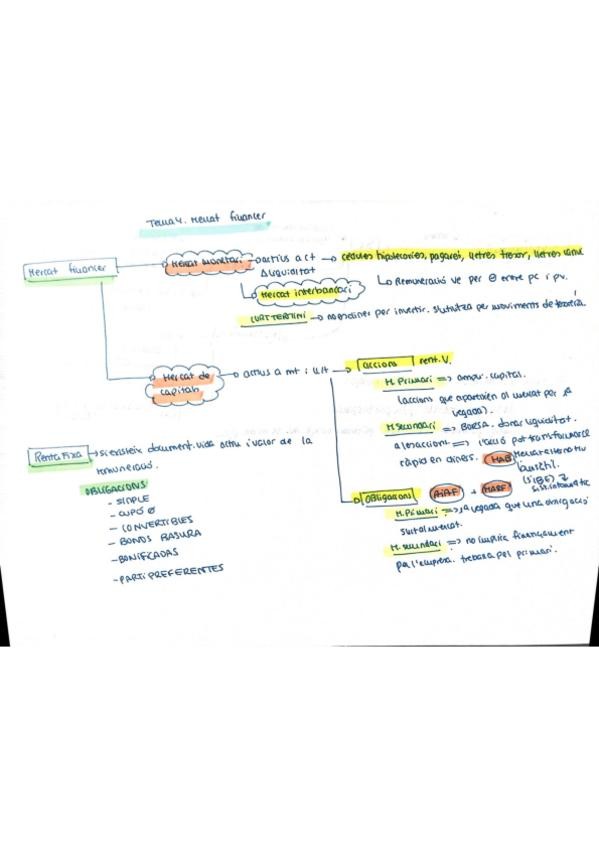 Tema 4. Mercat financer
Mercat financer
Mercat monetari → actius a ct → cèdules hipotecàries, pagarés, lletres tresor, lletres canvi
Δ liquiditat
↳ Remuneració ve per θ entre pc i pv.
Mercat interbancari
CURT TERMINI → no es diner per invertir. S'utilitza per moviments de tresoreria.
Mercat de capitals → actius a mt i ll/t → accions rent. V.
M. Primari => ampl. capital.
(accions que apareixen al mercat per 1a vegada).
M. secundari => BORSA. donar liquiditat.
a les accions => l'acció pot transformar-se
ràpid en diners. MAB Mercat alternatiu
bursàtil.
(SIBE)
sist. informàtic
Renta Fixa → si existeix document. vida actiu i valor de la
remuneració.
OBLIGACIONS
- SIMPLE
- CUPÓ Ø
- CONVERTIBLES
- BONOS BASURA
- BONIFICADAS
- PARTI PREFERENTES
Obligacions AIAF + MARF
M. Primari => 1a vegada que una obligació
surt al mercat.
M. secundari => no implica finançament
per l'empresa. pel primari.